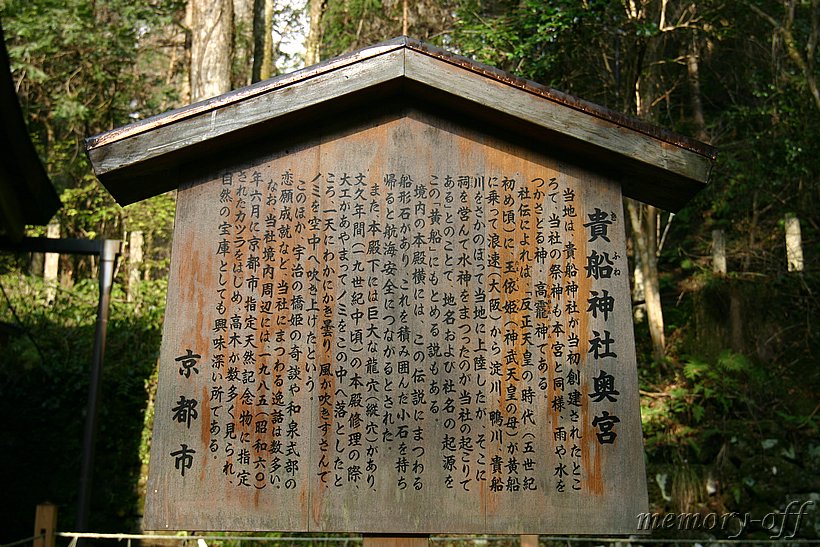 貴船神社奥宮
きふね
当地は、貴船神社が当初創建されたとこ
ろで、当社の祭神も本宮と同様、雨や水を
つかさどる神、高龗神である。
社伝によれば、反正天皇の時代(五世紀
初め頃)に、玉依姫(神武天皇の母)が黄船
に乗って浪速(大阪)から淀川、鴨川、貴船
川をさかのぼって当地に上陸したが、そこに
祠を営んで水神をまつったのが当社の起こりで
あるとのことで、地名および社名の起源を
この「黄船」にもとめる説もある。
境内の本殿横には、この伝説にまつわる
船形石があり、これを積み囲んだ小石を持ち
帰ると航海安全につながるとされた。
また、本殿下には巨大な龍穴(縦穴)があり、
文久年間(一九世紀中頃)の本殿修理の際、
大工があやまってノミをこの中へ落としたと
ころ、一天にわかにかき曇り、風が吹きすさんで、
ノミを空中へ吹き上げたという。
このほか、宇治の橋姫の奇談や和泉式部の
恋願成就など、当社にまつわる逸話は数多い。
なお、当社境内周辺には、一九八五(昭和六〇)
年六月に京都市指定天然記念物に指定
されたカツラをはじめ、高木が数多く見られ、
自然の宝庫としても興味深い所である。
京都市
memory-off